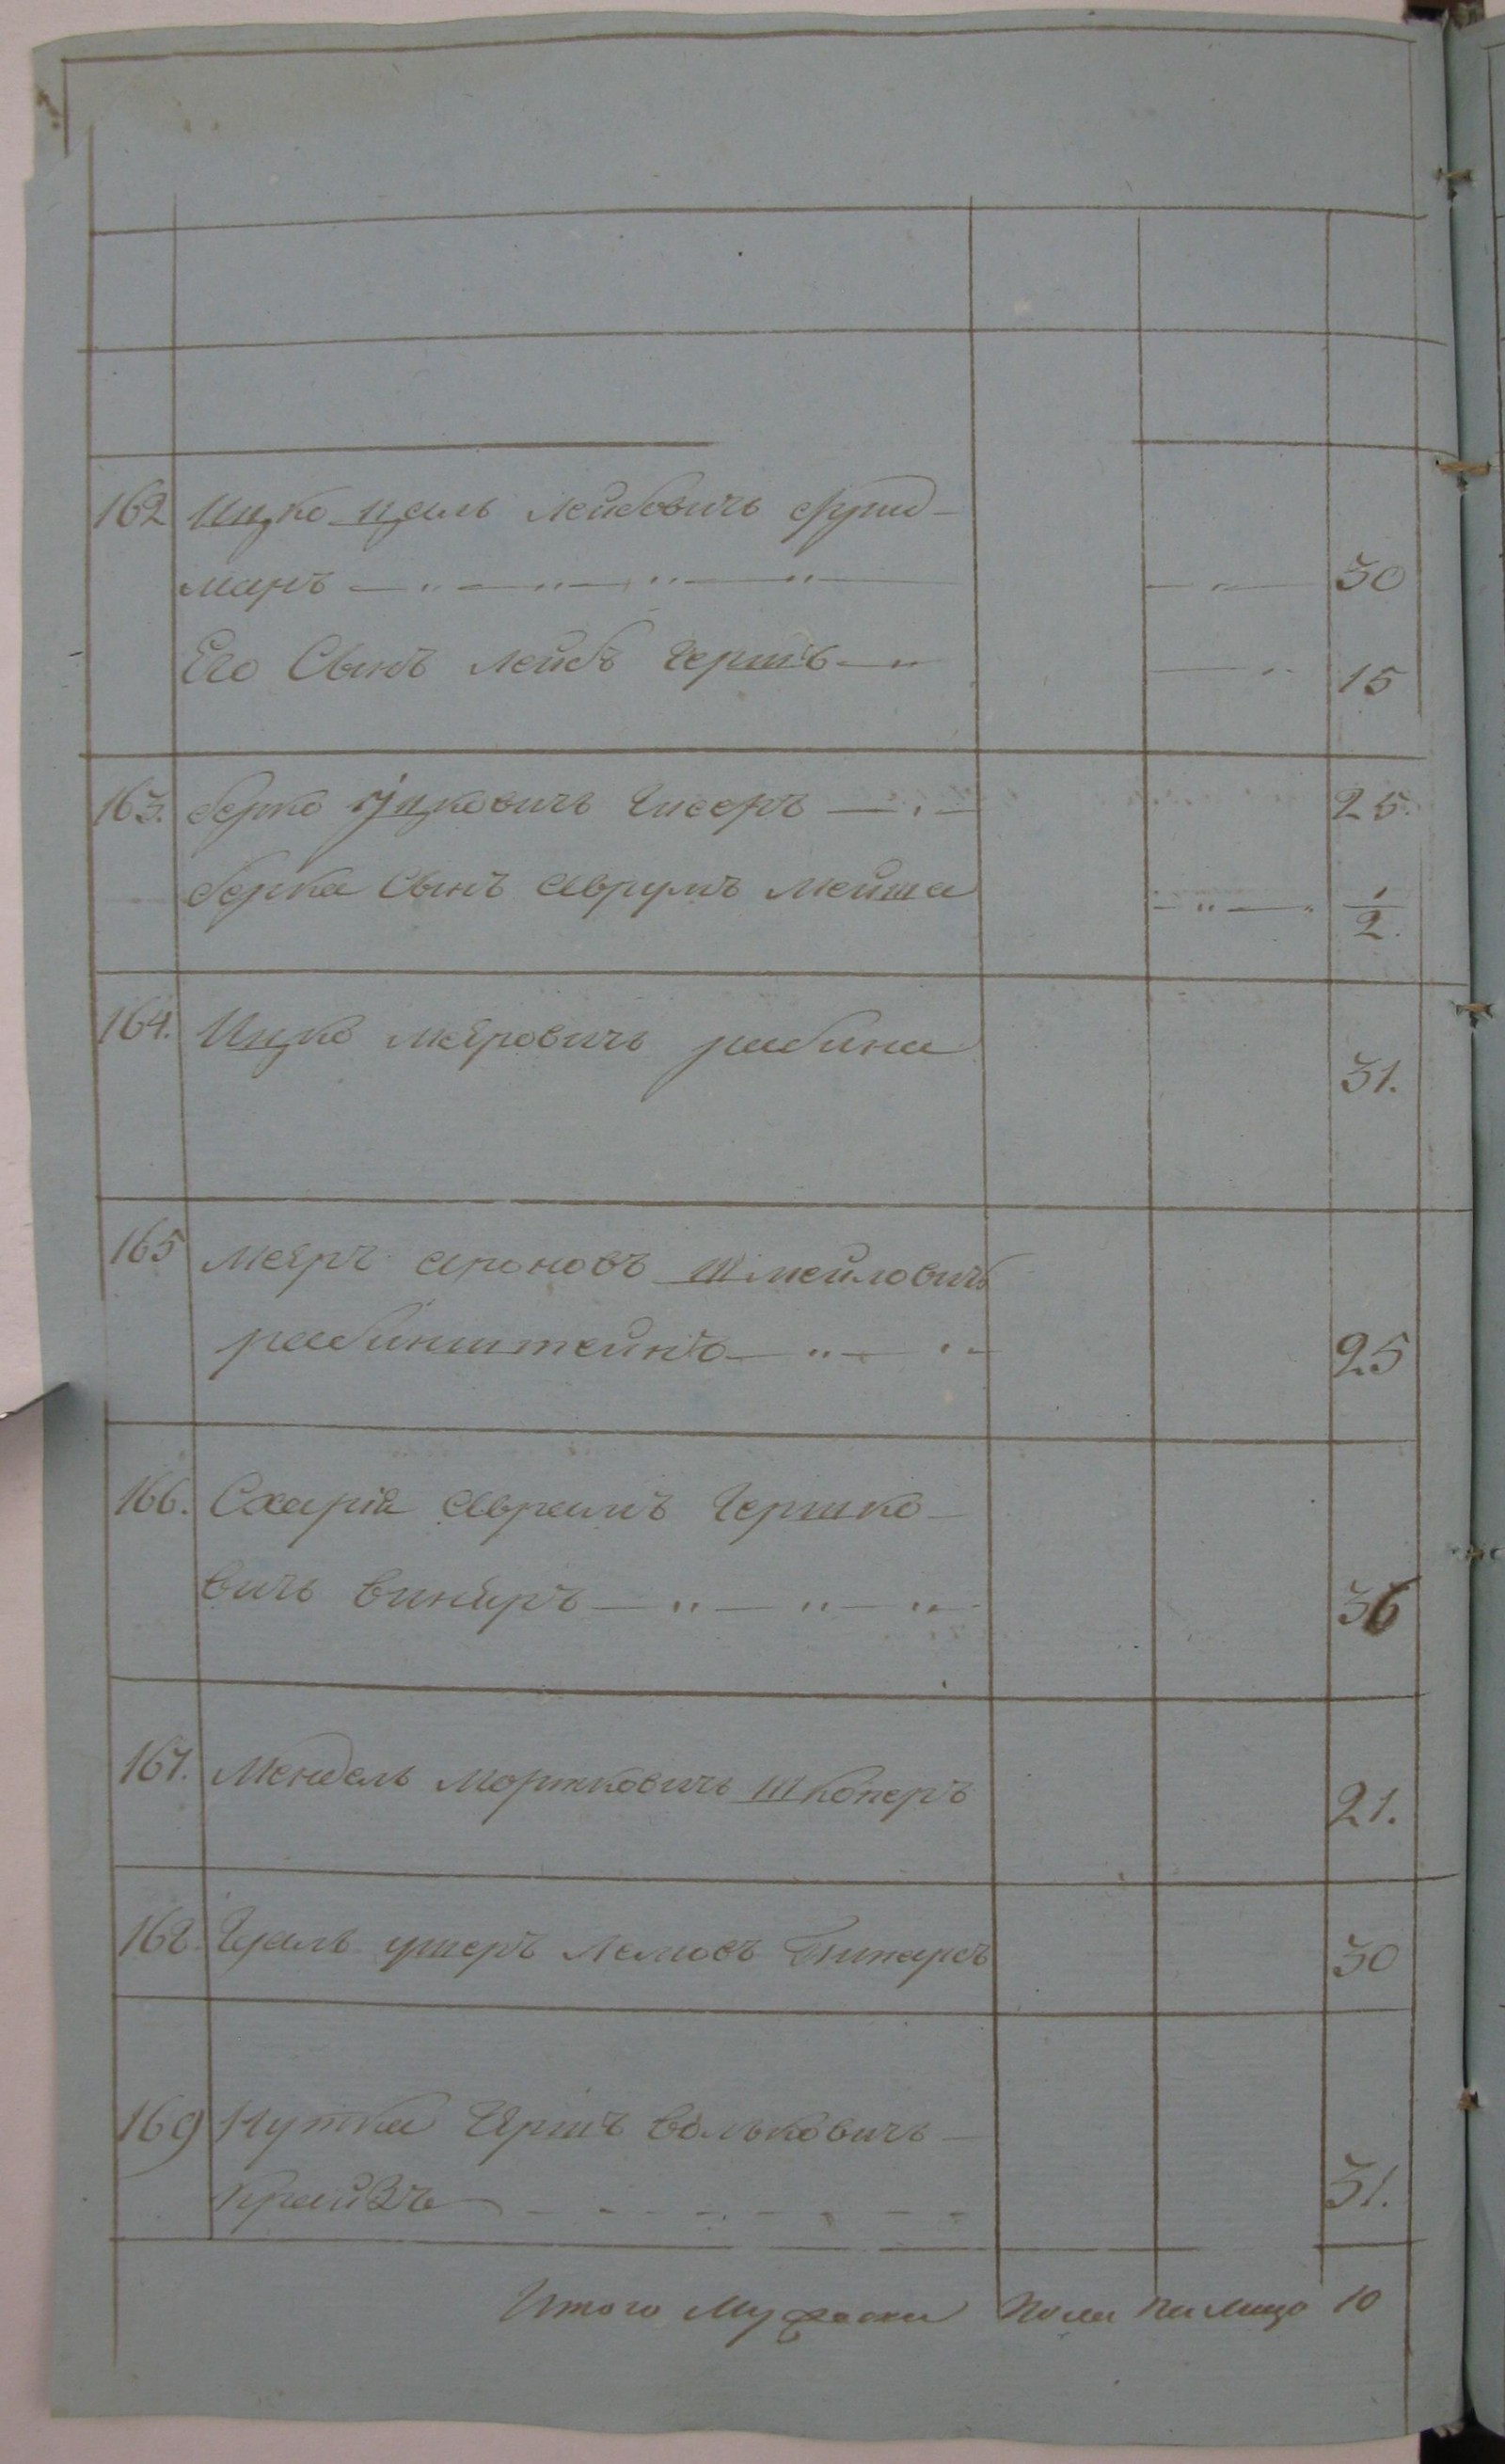 162 Ицко Целъ Лейбовичъ Фрид-
манъ 30
Его Сынъ Лейбъ Гершъ 15
163. Берко Іцковичъ Гисеръ 25.
Берка Сынъ Аврумъ Мейша 1/2.
164. Ицко Меѣровичъ рабина 31.
165 Меѣръ Ароновъ Шмейловичъ
рабинштейнъ 25
166. Схарія Аврамъ Гершко-
вичъ Винѣръ 36
167. Мендель Мортковичъ Шкоперъ 21.
168. ушеръ 30
169 Нутка Гѣршъ Вольковичъ
Крайзъ 31.
Итого Мужеска Пола На Лицо 10